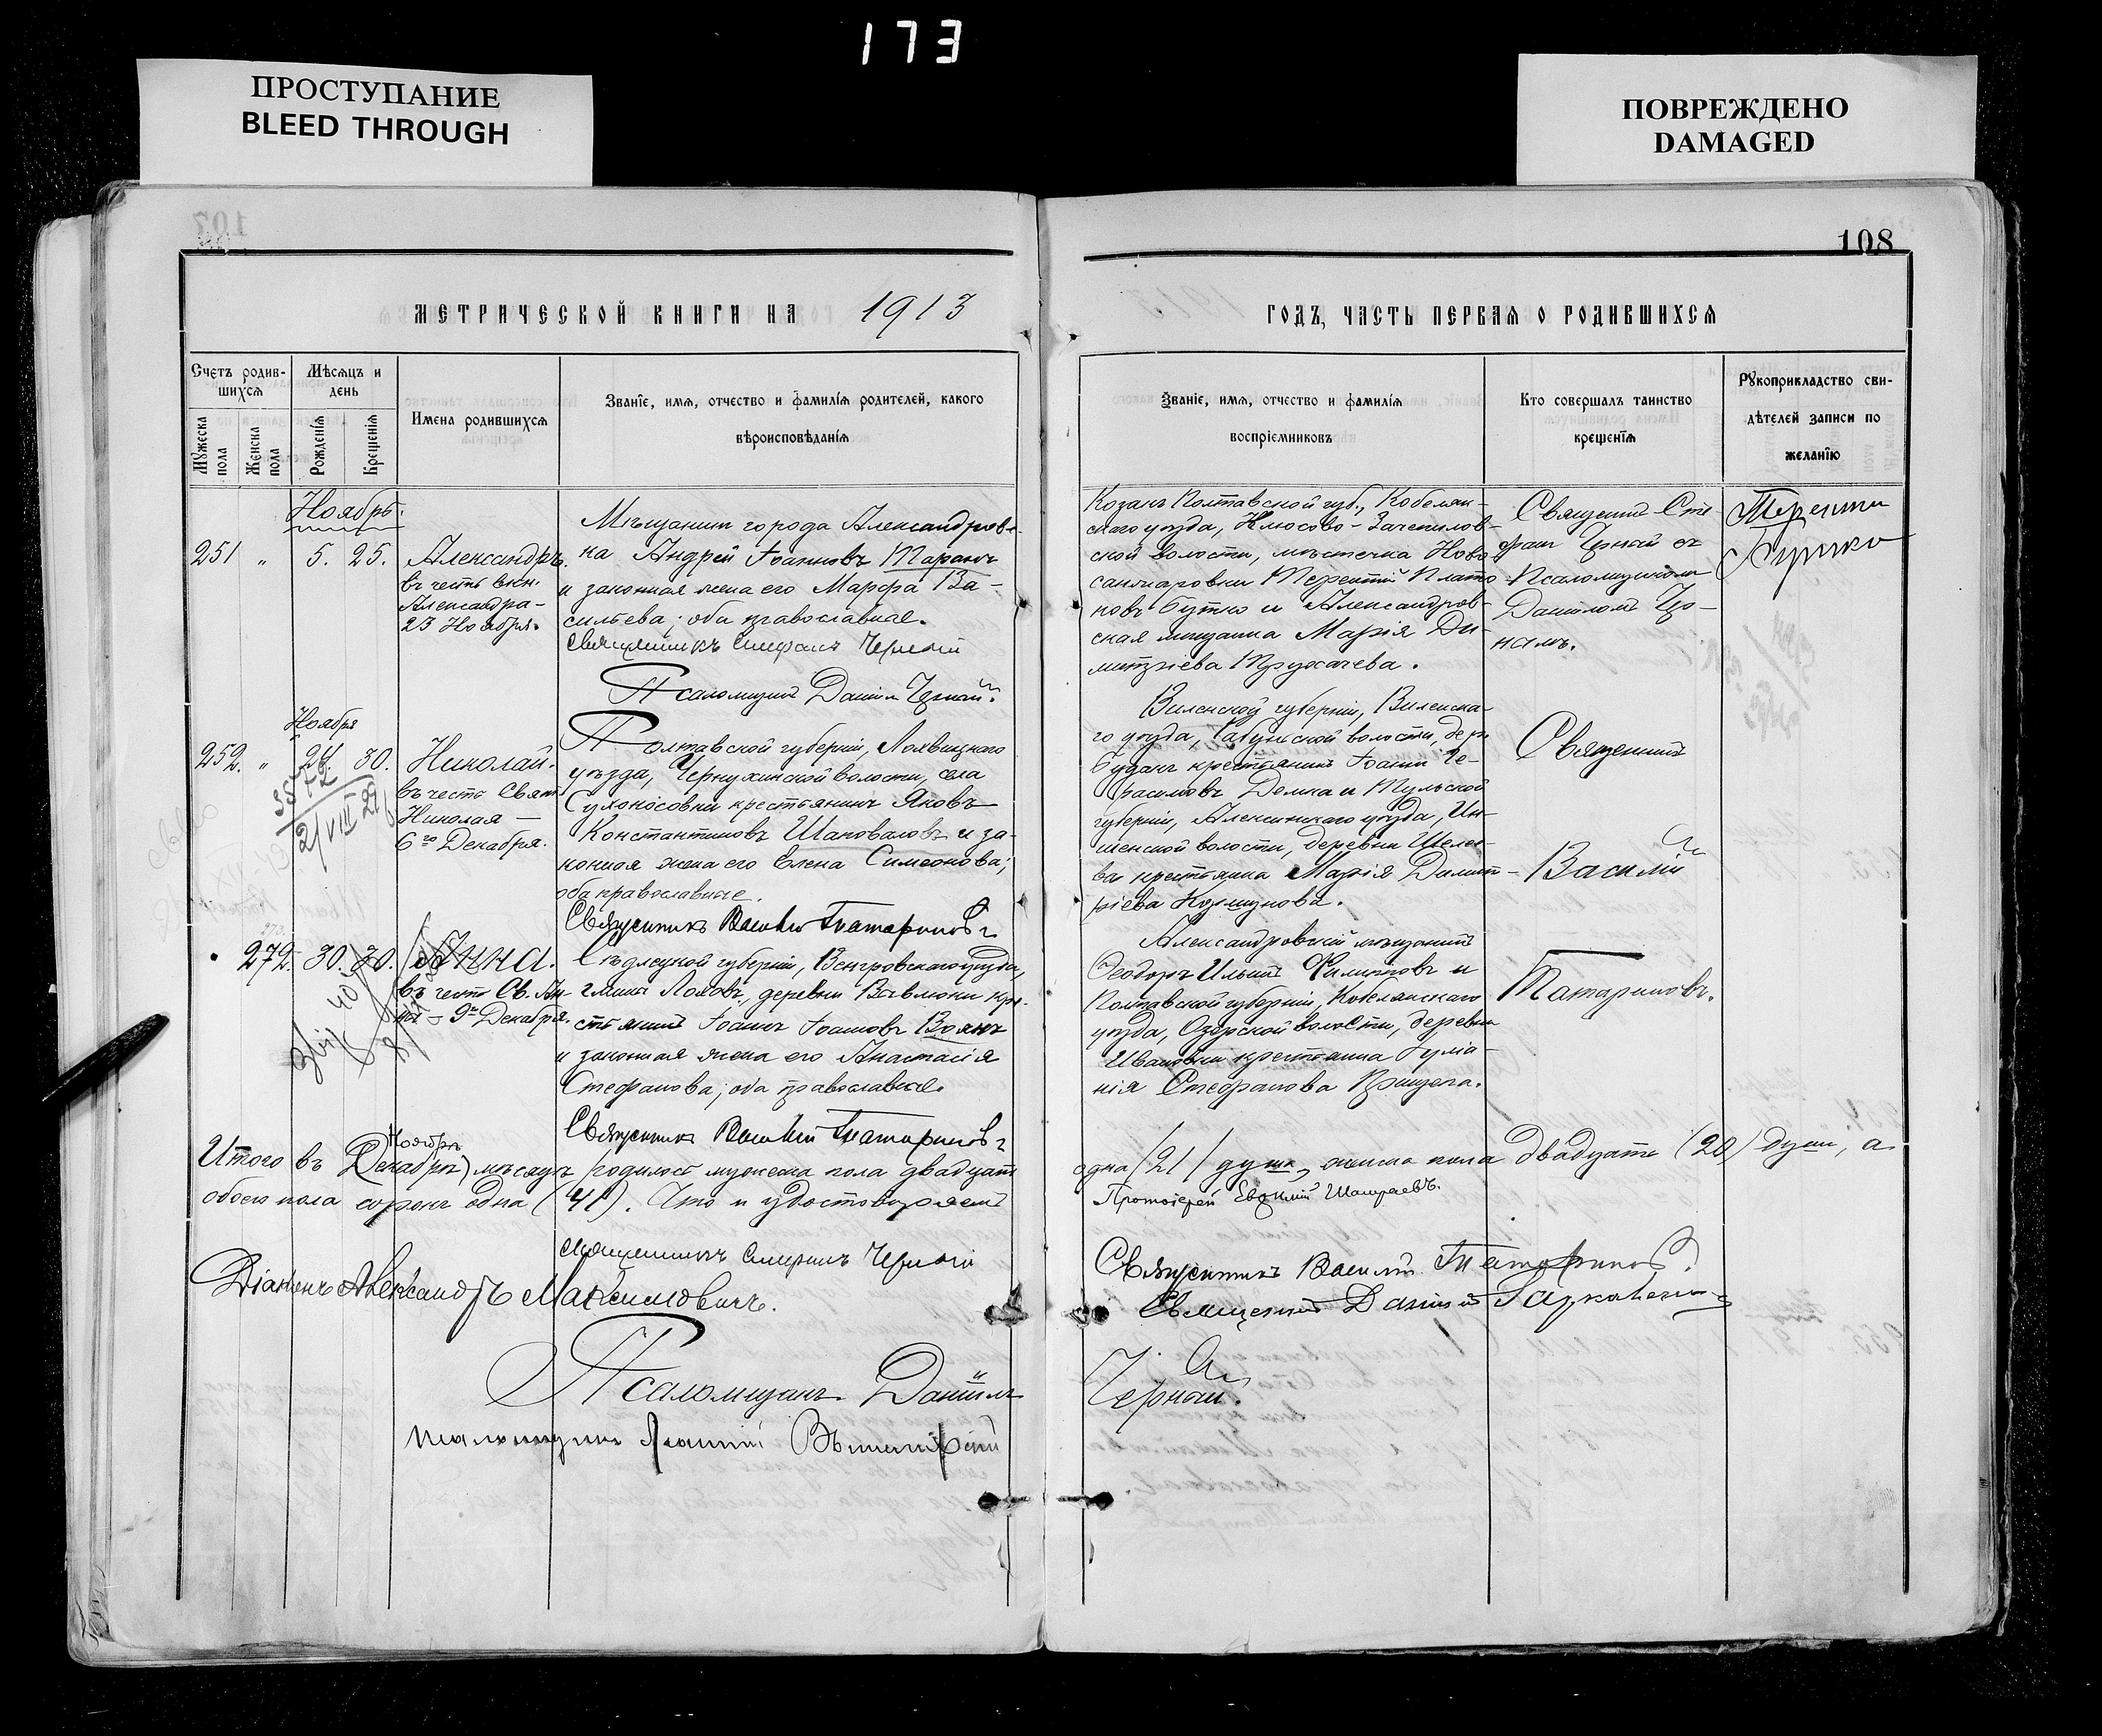 173
ПРОСТУПАНИЕ
BLEED THROUGH
ПОВРЕЖДЕНО
DAMAGED
108
МЕТРИЧЕСКОЙ КНИГИ НА 1913
ГОДЪ, ЧАСТЬ ПЕРВАѦ О РОДИВШИХСѦ
Счетъ родив-
шихсѧ
Мѣсѧцъ и
день
Мꙋжеска
пола
Женска
пола
Рожденїѧ
Крещенїѧ
Имена родившихсѧ
Званїе, имѧ, отчество и фамилїѧ родителей, какого
вѣроисповѣданїѧ
Званїе, имѧ, отчество и фамилїѧ
воспрїемниковъ
Кто совершалъ таинство
крещенїѧ
Рꙋкоприкладство сви-
дѣтелей записи по
желанїю
Ноябрь.
251 " 5. 25.
Александръ.
въ честь
Александра-
23 Ноября.
Мѣщанинъ города Александров-
ка Андрей Іоанновъ Таранъ
и законная жена его Марѳа Ва-
сильева; оба православные.
Священникъ Стефанъ Черный
Псаломщикъ Даніилъ Черный.
Козакъ Полтавской губ., Кобеляк-
скаго уѣзда,
ской волости, мѣстечка Ново
санжаровки Терентій Плато-
новъ Бутко и Александров-
ская мѣщанка Марія Ди-
митріева
Священникъ Сте-
фанъ Черный съ
Псаломщикомъ
Даніиломъ Чер-
нымъ.
Терентий
Бутко
Ноября
252. " 24. 30.
Николай.
въ честь Свят.
Николая —
6го Декабря.
Полтавской губерніи, Лохвицкаго
уѣзда, Чернухинской волости, села
Сухоносовки крестьянинъ Яковъ
Константиновъ Шаповаловъ и за-
конная жена его Елена Симеонова;
оба православные.
Священникъ Василій Татариновъ
Виленской губерніи, Виленска-
го уѣзда, волости, дер.
крестьянинъ Іоаннъ Ге-
расимовъ и Тульской
губерніи, Алексинскаго уѣзда,
шенской волости, деревни
ва крестьянка Марія Димит-
ріева
Священникъ
Василій
Татариновъ.
3572
21/VIII 27
272. 30. 30.
Анна.
въ честь Св. Ан-
ны - 9го Декабря.
Сѣдлецкой губерніи, Венгровскаго уѣзда,
гмины деревни кре-
стьянинъ Іоаннъ Іоанновъ Воякъ
и законная жена его Анастасія
Стефанова; оба православные.
Священникъ Василій Татариновъ
Александровскій мѣщанинъ
Ѳеодоръ Ильинъ Филиповъ и
Полтавской губерніи, Кобелякскаго
уѣзда, Озерской волости, деревни
Ивановки крестьянка Іуліа-
нія Стефанова
Итого въ (Декабрѣ) Ноябрѣ мѣсяцѣ родилось мужеска пола двадцать
одна /21/ душа, женска пола двадцать (20) душъ, а
обоего пола сорокъ одна (41). Что и удостовѣряемъ
Протоіерей
Священникъ Стефанъ Черный
Священникъ Василій Татариновъ.
Діаконъ Александръ Максимовичъ.
Священникъ Даніилъ
Псаломщикъ Даніилъ
Черный.
Псаломщикъ